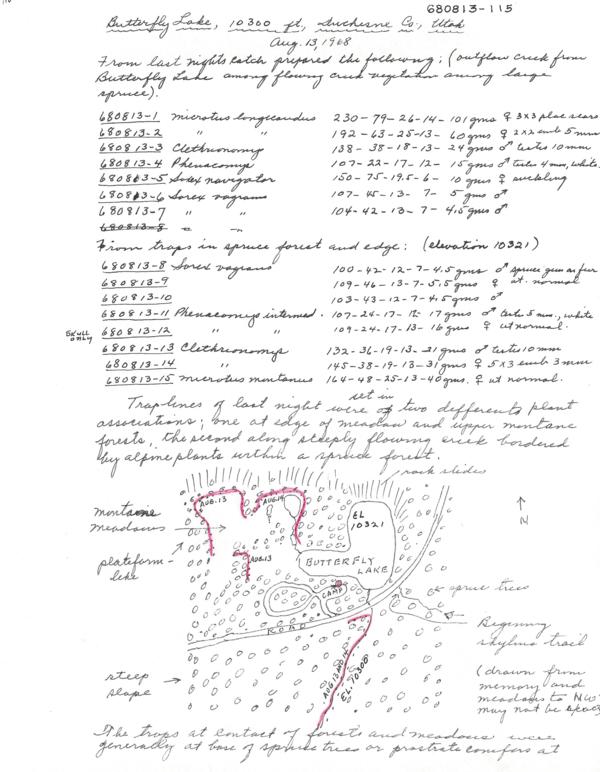 680813-115
Butterfly Lake, 10300 ft, Duchesne Co., Utah
Aug. 13, 1968
From last nights catch prepared the following: (outflow creek from
Butterfly Lake among flowing creek vegetation among large
spruce).
680813-1 Microtus longicaudus 230-79-26-14-101 gms ♀ 3x3 plac scars
680813-2 " " 192-63-25-13-60 gms ♀ 2x2 emb 5 mm
680813-3 Clethrionomys 138-38-18-13-24 gms ♂ testes 10 mm
680813-4 Phenacomys 107-22-17-12-15 gms ♂ testes 4 mm, white.
680813-5 Sorex navigator 150-75-19.5-6-10 gms ♀ suckling
680813-6 Sorex vagrans 107-45-13-7-5 gms ♂
680813-7 " " 104-42-13-7-4.5 gms ♂
680813-8 " "
From traps in spruce forest and edge: (elevation 10321)
680813-8 Sorex vagrans 100-42-12-7-4.5 gms ♂ spruce
680813-9 109-46-13-7-5.5 gms ♀ ut. normal
680813-10 103-43-12-7-4.5 gms ♂
680813-11 Phenacomys intermed. 107-24-17-12-17 gms ♂ testes 5 mm., white
SKULL ONLY 680813-12 " " 109-24-17-13-16 gms ♀ ut normal.
680813-13 Clethrionomys 132-36-19-13-21 gms ♂ testes 10 mm
680813-14 145-38-19-13-31 gms ♀ 5x3 emb 3 mm
680813-15 Microtus montanus 164-48-25-13-40 gms. ♀ ut normal.
set in
Traplines of last night were of two differents plant
associations; one at edge of meadow and upper montane
forests, the second along steeply flowing creek bordered
by alpine plants within a spruce forest.
rock slides
AUG. 13
AUG 14
EL
10321
N
montane
meadows
AUG. 13
plateform-
like
BUTTERFLY
LAKE
CAMP
spruce trees
ROAD
Begenning
skyline trail
AUG 13 AND 14
EL. 10300
steep
slope
(drawn from
memory and
meadows to NW
may not be exact)
The traps at contact of forests and meadows were
generally at base of spruce trees or prostrate conifers at